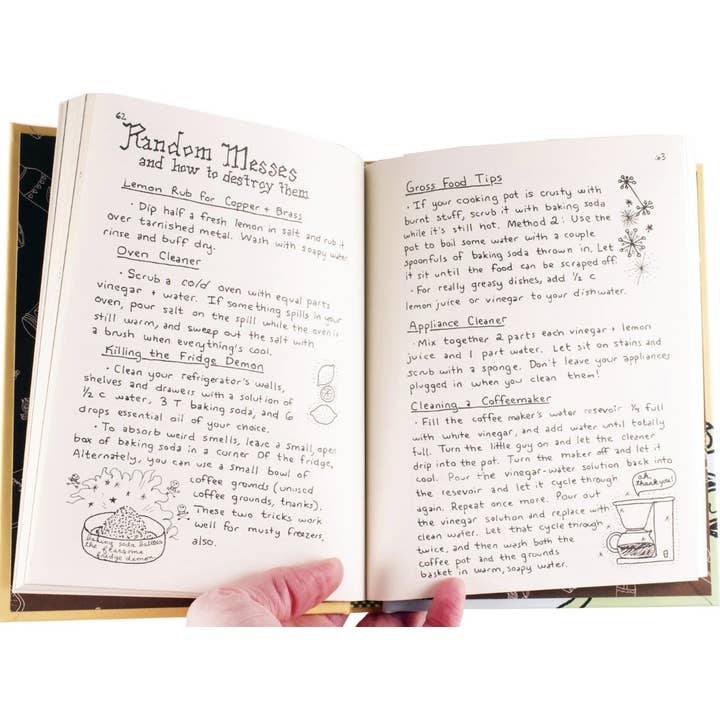 62
Random Messes
and how to destroy them
Lemon Rub for Copper + Brass
· Dip half a fresh lemon in salt and rub it
over tarnished metal. Wash with soapy water,
rinse and buff dry.
Oven Cleaner
· Scrub a cold oven with equal parts
vinegar + water. If something spills in your
oven, pour salt on the spill while the oven is
still warm, and sweep out the salt with
a brush when everything's cool.
Killing the Fridge Demon
· Clean your refrigerator's walls,
shelves and drawers with a solution of
½ c water, 3 T baking soda, and 6
drops essential oil of your choice.
· To absorb weird smells, leave a small, open
box of baking soda in a corner OF the fridge.
Alternately, you can use a small bowl of
coffee grounds (unused
coffee grounds, thanks).
These two tricks work
well for musty freezers,
also.
baking soda battles
the fearsome
fridge demon
63
Gross Food Tips
· If your cooking pot is crusty with
burnt stuff, scrub it with baking soda
while it's still hot. Method 2: Use the
pot to boil some water with a couple
spoonfuls of baking soda thrown in. Let
it sit until the food can be scraped off.
· For really greasy dishes, add ½ c
lemon juice or vinegar to your dishwater.
Appliance Cleaner
· Mix together 2 parts each vinegar + lemon
juice and 1 part water. Let sit on stains and
scrub with a sponge. Don't leave your appliances
plugged in when you clean them!
Cleaning a Coffeemaker
· Fill the coffee maker's water resevoir ¾ full
with white vinegar, and add water until totally
full. Turn the little guy on and let the cleaner
drip into the pot. Turn the maker off and let it
cool. Pour the vinegar-water solution back into
the resevoir and let it cycle through
again. Repeat once more. Pour out
the vinegar solution and replace with
clean water. Let that cycle through
twice, and then wash both the
coffee pot and the grounds
basket in warm, soapy water.
oh,
thank you!